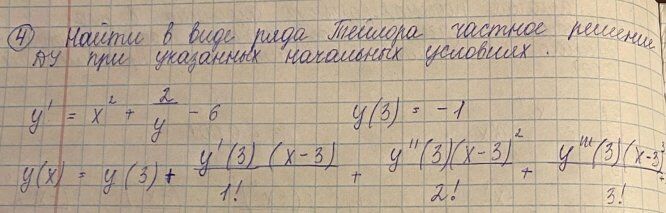 ④ Найти в виде ряда Тейлора частное решение
ДУ при указанных начальных условиях.
y' = x² + 2/y - 6    y(3) = -1
y(x) = y(3) + y'(3)(x-3)/1! + y''(3)(x-3)²/2! + y'''(3)(x-3)³/3! +